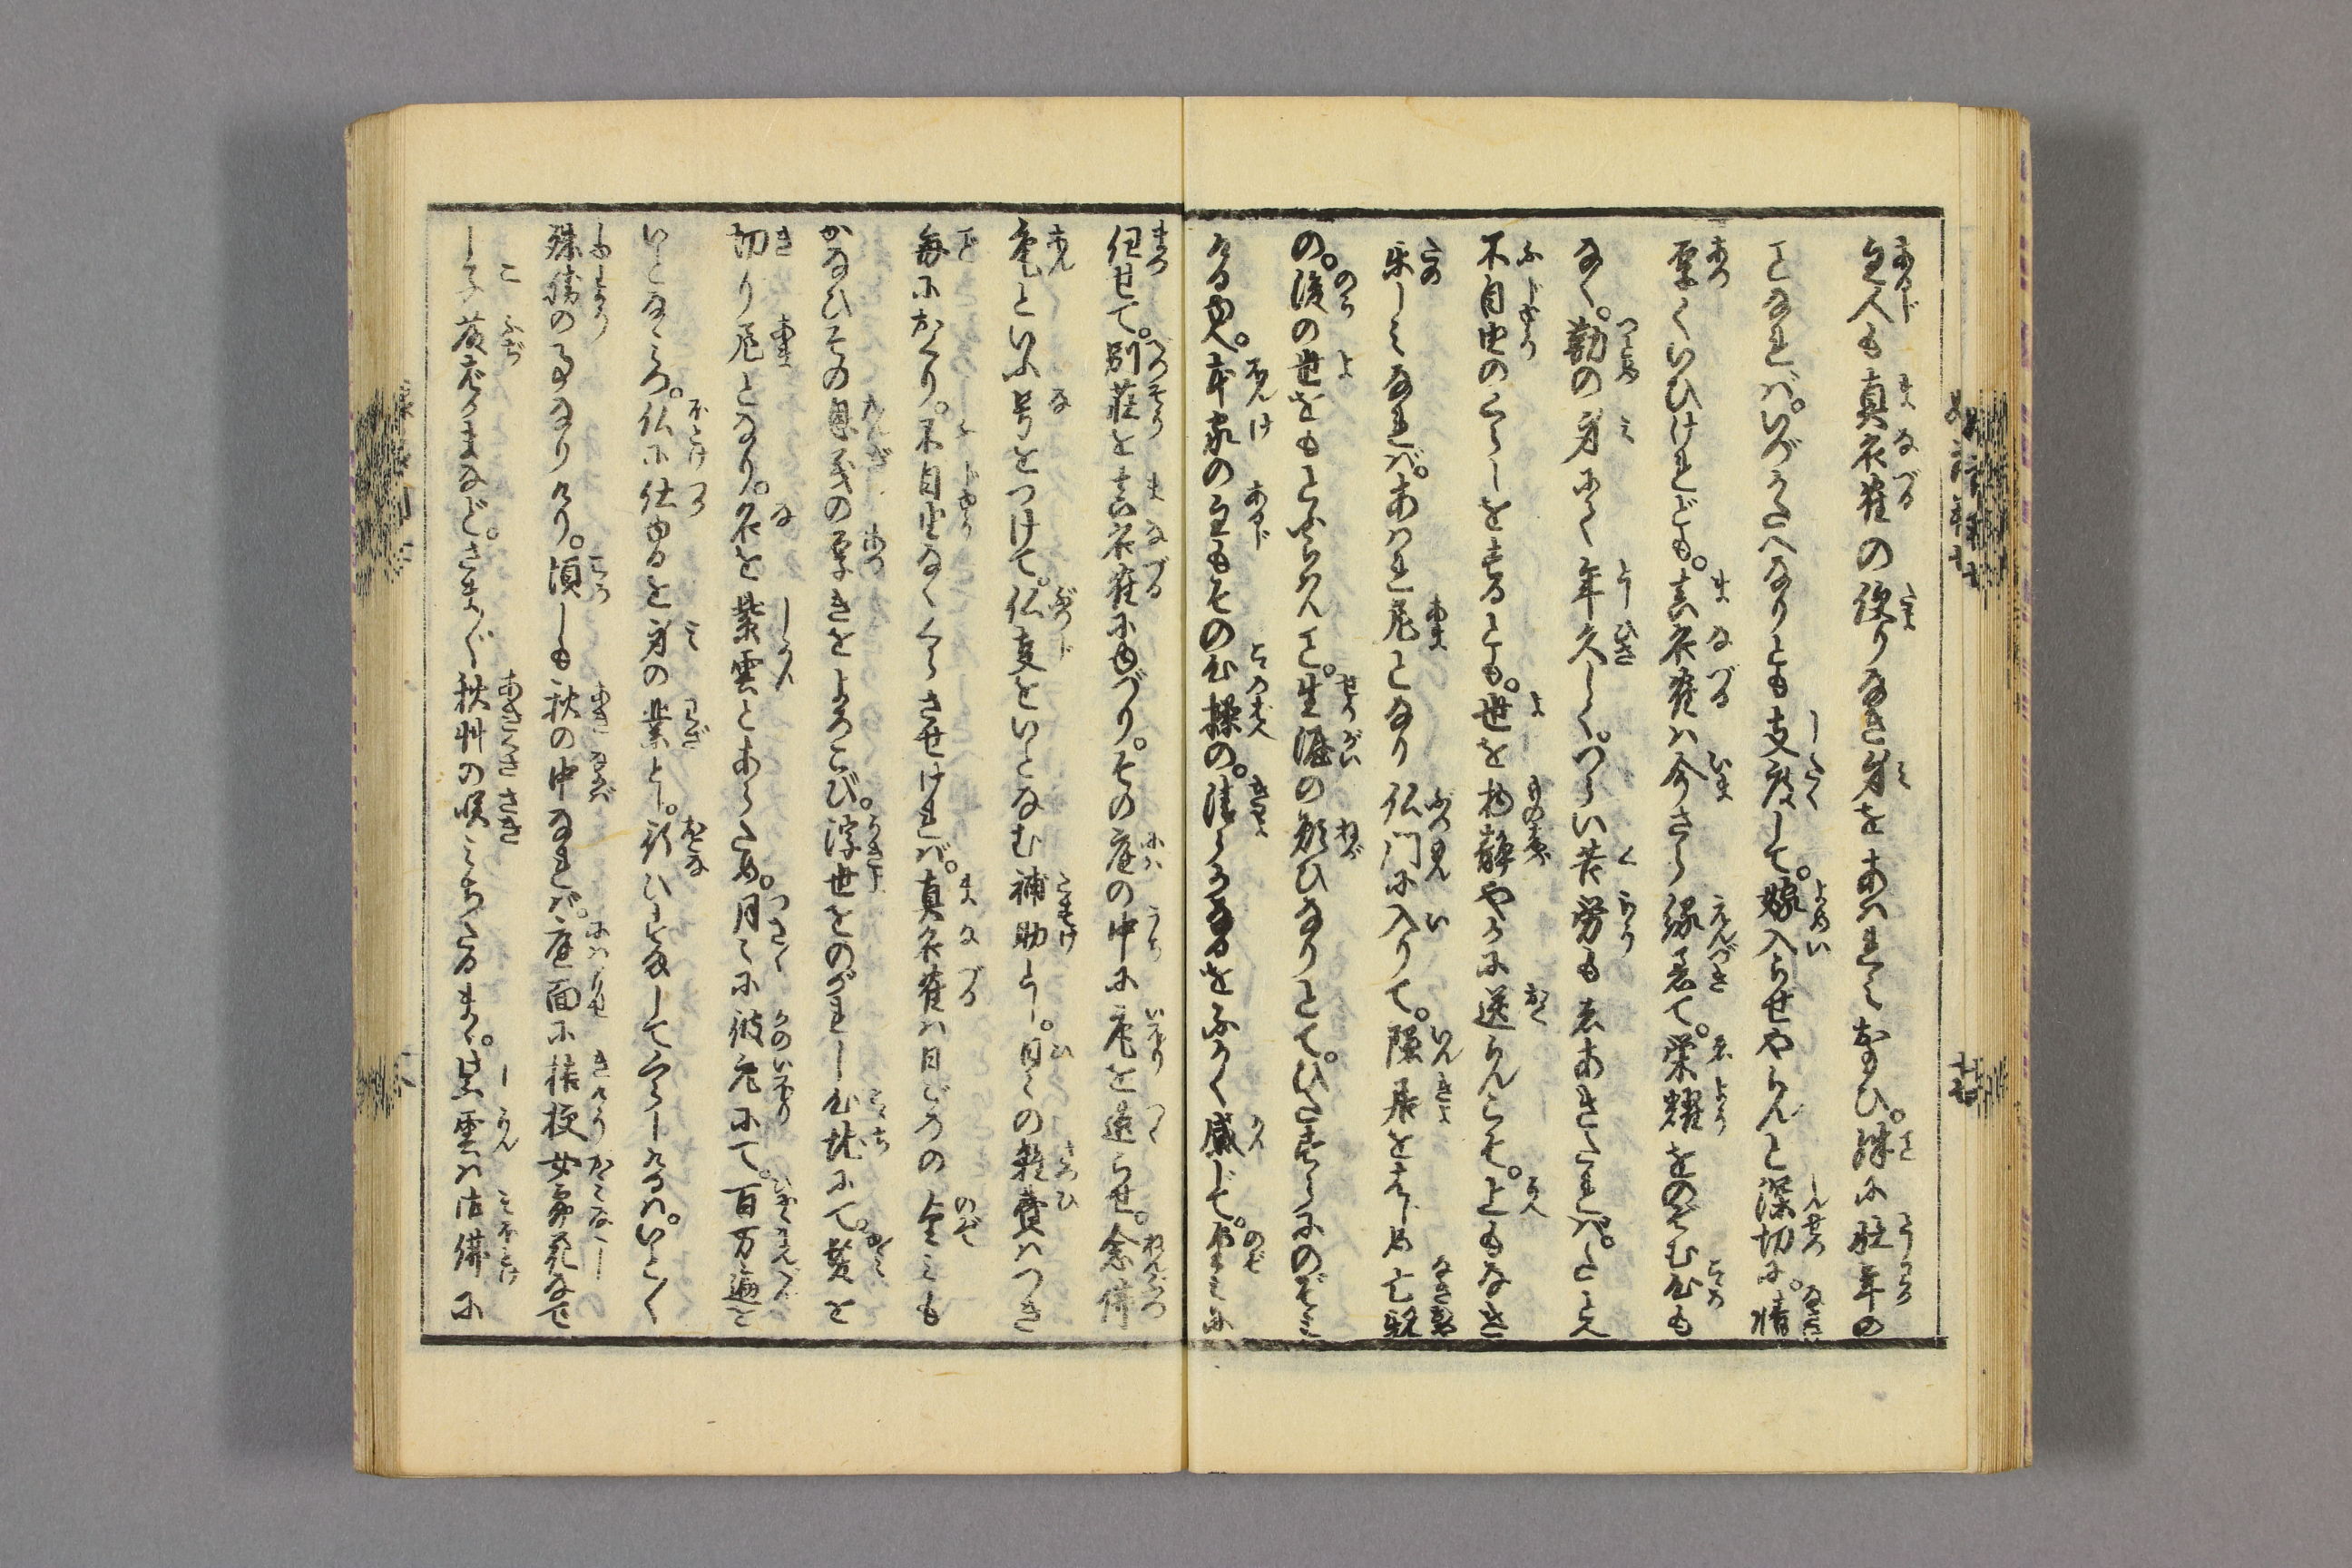 主人も真衣鶴の便りなき身をあはれみおもひ。殊に壮年の
ことなれば。いづかたへなりとも支度して。嫁入らせやらんと深切に。情
厚くいひけれども。真衣鶴は今さら縁着て。栄耀をのぞむ心も
なく。勤の身にて年久しく。つらい苦労もしあきたれば。たとへ
不自由のくらしをするとも。世を物静やかに送らんこそ。上もなき
楽しみなれば。あはれ尼となり仏門に入りて。隠居をはじめ亡親
の。後の世をもとふらはんこと。生涯の願ひなりとて。ひたすらにのぞみ
ける也。本家の主もその心操の。清らかなるをふかく感じて。望みに
任せて。別荘を真衣鶴にゆづり。その庭の中に庵を造らせ。念仏
庵といふ号をつけて。仏事をいとなむ補助とし。日々の雑費はつき
毎におくり。不自由なくくらさせければ。真衣鶴は日ごろの望みも
かなひその恩義の厚きをよろこび。浮世をのがれし心地にて。髪を
切り尼となり。名を紫雲とあらため。月々に彼庵にて。百万遍を
いとなみ。仏に仕ゆるを身の業とし。行ひすましてくらしけるは。いと〳〵
殊勝の事なりけり。頃しも秋の中なれば。庭面に桔梗女郎花なで
し子藤ばかまなど。さま〴〵秋草の咲みちたるまゝ。紫雲は御仏に